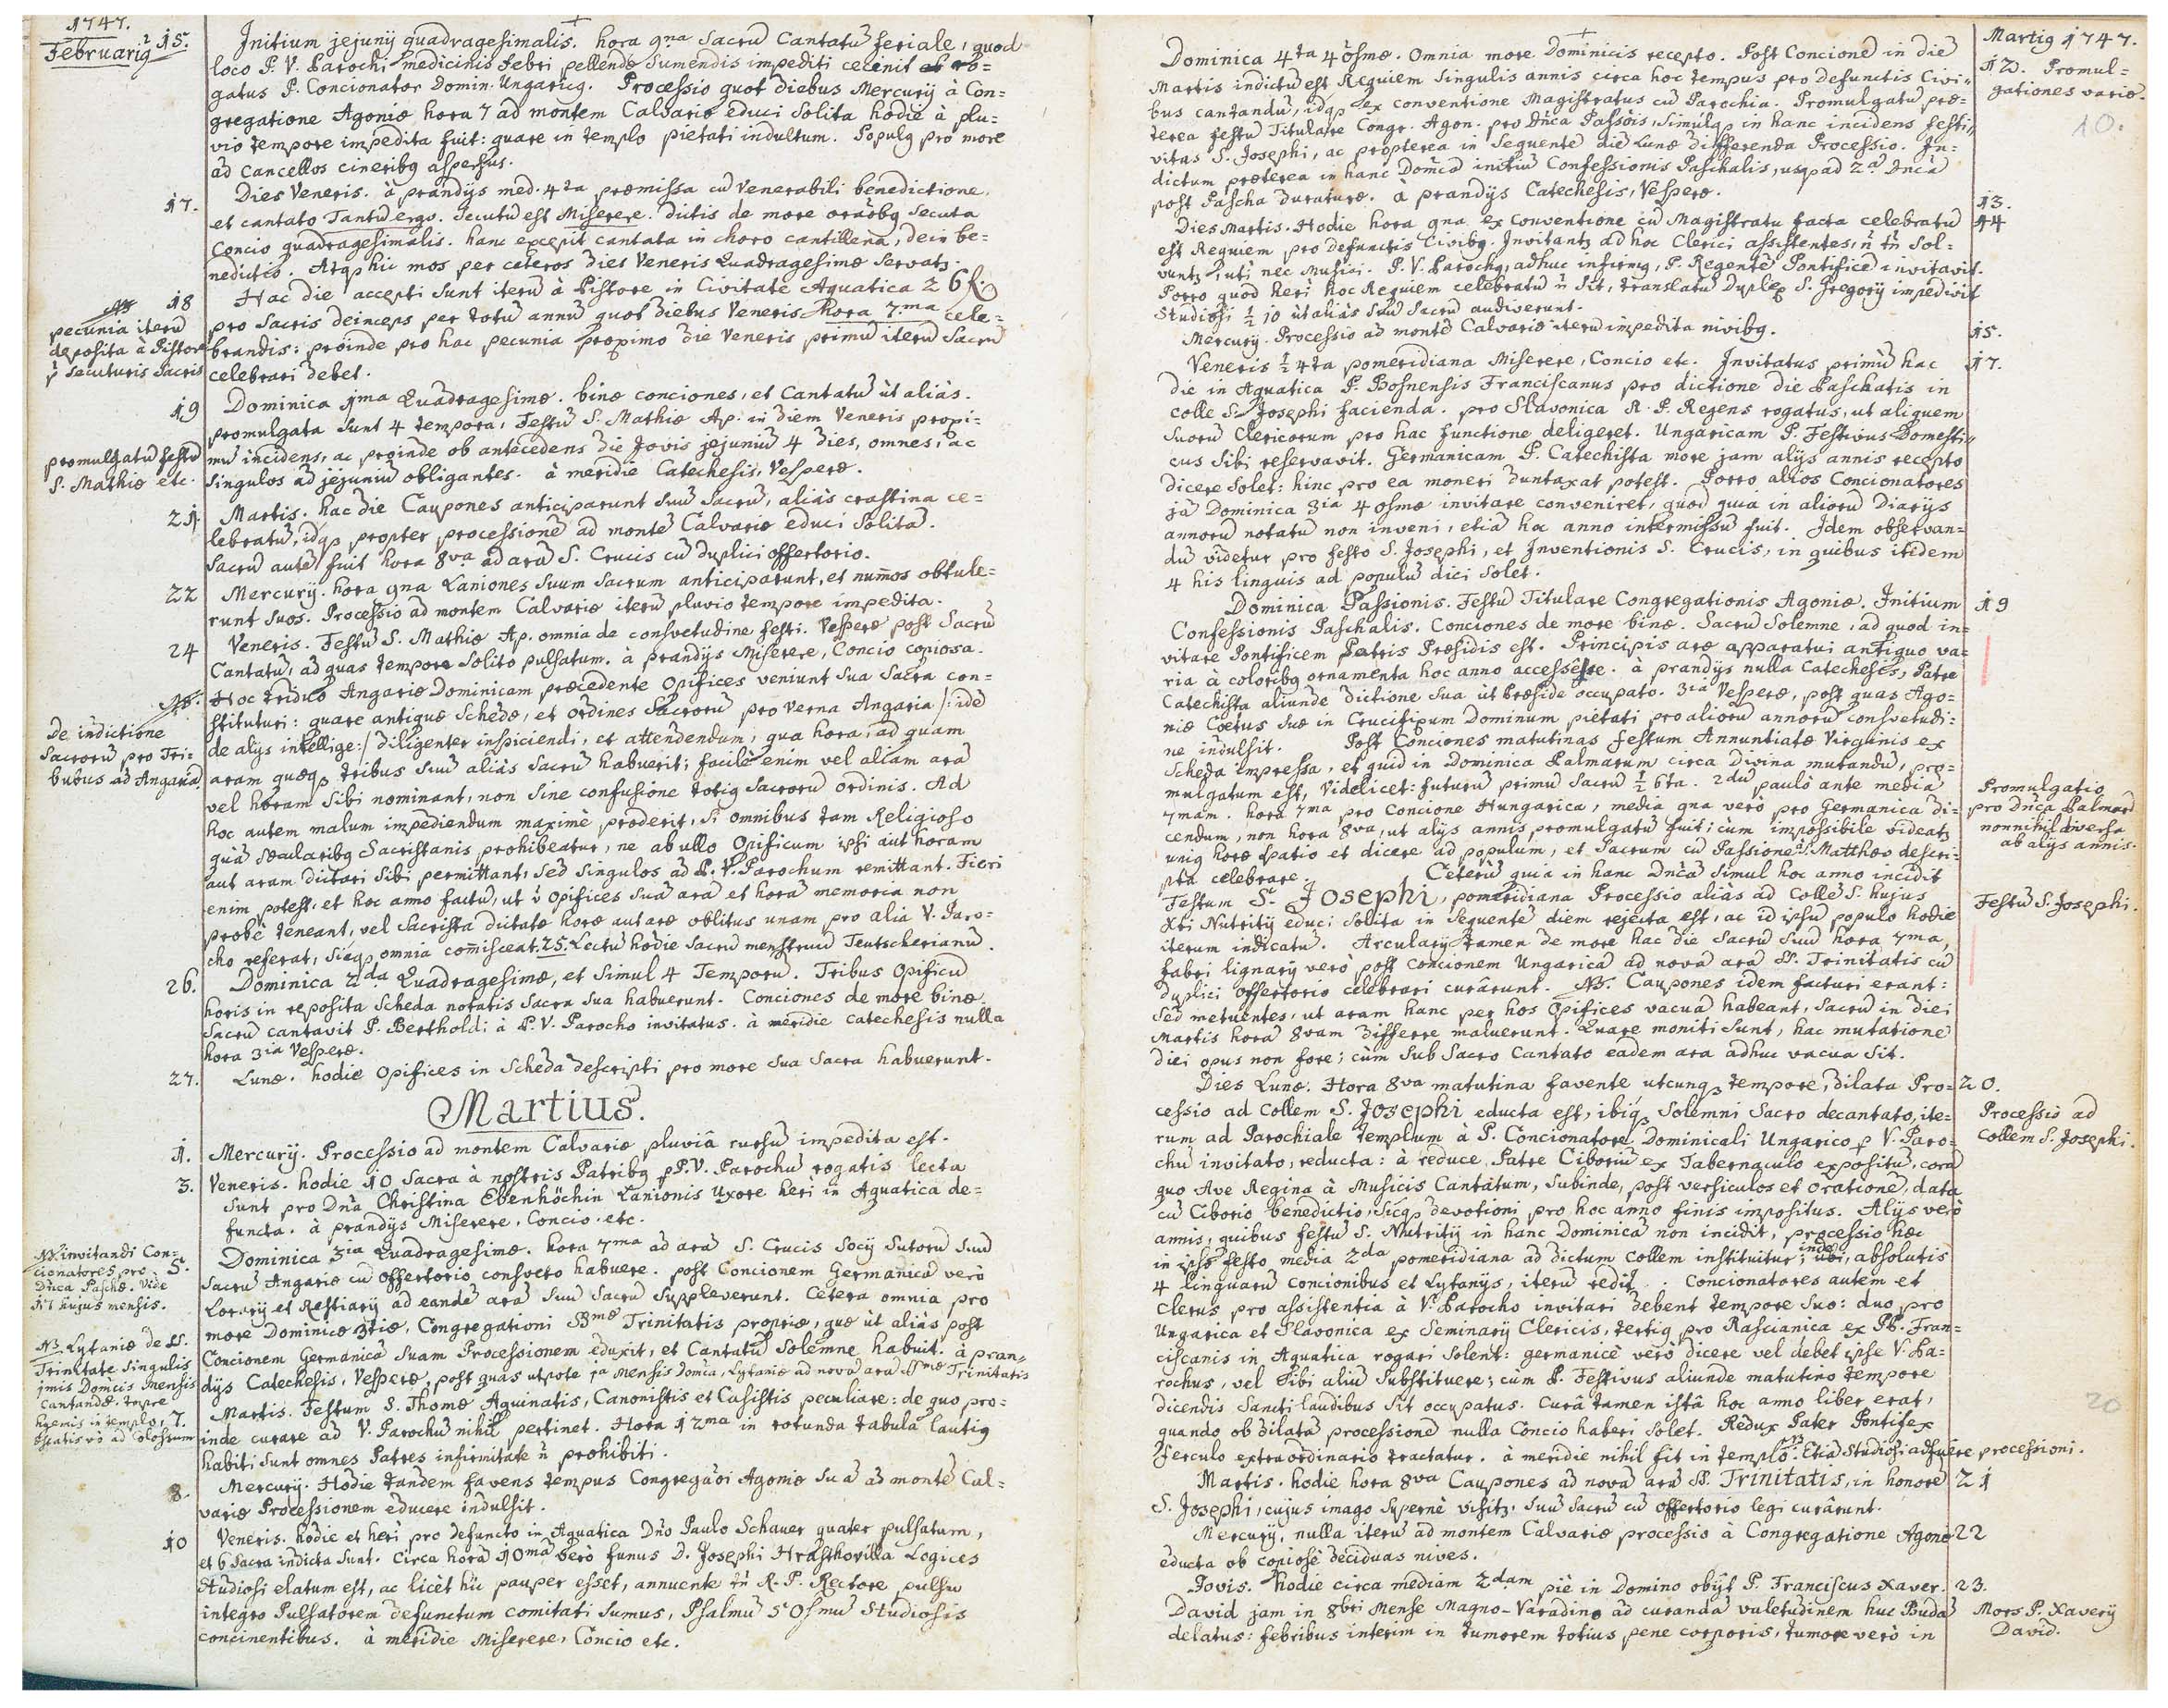 1747.
Februari9 15.
Initium jejunij quadragesimalis. hora 9na Sacrũ Cantatũ feriale, quod
loco P. V. Parochi medicinis febri pellendæ sumendis impediti cecinit ro=
gatus P. Concionator Domin. Ungaric9. Processio quot diebus Mercurij à Con=
gregatione Agoniæ hora 7 ad montem Calvariæ educi solita hodie à plu=
vio tempore impedita fuit: quare in templo pietati indultum. Popul9 pro more
ad cancellos cinerib9 aspersus.
17.
Dies Veneris. à prandijs med. 4ta præmissa cũ Venerabili benedictione,
et cantato Tantũ ergo. Secutũ est Miserere. dictis de more orãõb9 secuta
Concio quadragesimalis. hanc excepit cantata in choro cantillena, dein be=
nedictio. Atq3 hic mos per ceteros dies Veneris Quadragesimæ servatz.
18
Hac die accepti sunt iterũ à Pistore in Civitate Aquatica 26 f.
pro Sacris deinceps per totũ annũ quot diebus Veneris hora 7.ma cele=
brandis: proinde pro hac pecunia proximo die Veneris primũ iterũ Sacrũ
celebrari debet.
NB
pecunia iterũ
deposita à Pistore
p secuturis Sacris
19
Dominica 1ma Quadragesimæ. binæ conciones, et Cantatũ ùt aliàs.
promulgata sunt 4 tempora, Festũ S. Mathiæ Ap. in diem Veneris proxi=
mũ incidens, ac proinde ob antecedens die Jovis jejuniũ 4 dies, omnes, ac
singulos ad jejuniũ obligantes. à meridie Catechesis, Vesperæ.
promulgatũ festũ
S. Mathiæ etc.
21
Martis. hac die Caupones anticiparunt suũ Sacrũ, aliàs crastina ce=
lebratũ, idq3 propter processionẽ ad montẽ Calvariæ educi solitã.
Sacrũ autẽ fuit hora 8va ad arã S. Crucis cũ duplici offertorio.
22
Mercurij. hora 9na Laniones suum Sacrum anticiparunt, et nummos obtule=
runt suos. Processio ad montem Calvariæ iterũ pluvio tempore impedita.
24
Veneris. Festũ S. Mathiæ Ap. omnia de consvetudine festi. Vesperæ post Sacrũ
Cantatũ, ad quas tempore solito pulsatum. à prandijs Miserere, Concio copiosa.
NB.
De indictione
Sacrorũ pro Tri=
bubus ad Angariã.
Hoc triduo Angariæ Dominicam præcedente Opifices veniunt sua Sacra con=
stituturi: quare antiquæ Schedæ, et ordines Sacrorũ pro Verna Angaria /: idẽ
de alijs intellige :/ diligenter inspiciendi, et attendendum, qua hora, ad quam
aram quæq3 tribus suũ aliàs Sacrũ habuerit; facilè enim vel aliam arã
vel horam sibi nominant, non sine confusione toti9 Sacrorũ ordinis. Ad
hoc autem malum impediendum maximè proderit, si omnibus tam Religioso
quã Sæcularib9 Sacristanis prohibeatur, ne ab ullo Opificum ipsi aut horam
aut aram dictari sibi permittant, sed singulos ad P. V. Parochum remittant. Fieri
enim potest, et hoc anno factũ, ut i Opifices suã arã et horã memoria non
probè teneant, vel Sacrista dictatæ horæ aut aræ oblitus unam pro alia V. Paro=
cho referat, sicq3 omnia com̃isceat. 25. Lectũ hodie Sacrũ menstruũ Teutscherianũ.
26.
Dominica 2da Quadragesimæ, et simul 4 Temporũ. Tribus Opificũ
horis in reposita Scheda notatis Sacra sua habuerunt. Conciones de more binæ.
Sacrũ cantavit P. Berthold: à P. V. Parocho invitatus. à meridie catechesis nulla
hora 3ia Vesperæ.
27.
Lunæ. hodie Opifices in Scheda descripti pro more sua Sacra habuerunt.
Martius.
1.
Mercurij. Processio ad montem Calvariæ pluviâ rursũ impedita est.
3.
Veneris. hodie 10 Sacra à nostris Patrib9 p P. V. Parochũ rogatis lecta
sunt pro Dnã Christina Ebenhöchin Lanionis Uxore heri in Aquatica de=
functa. à prandijs Miserere, Concio. etc.
NB invitandi Con=
cionatores pro
Dnĩca Paschæ. vide
17 hujus mensis.
5.
Dominica 3ia Quadragesimæ. hora 7ma ad arã S. Crucis Socij Sutorũ suũ
Sacrũ Angariæ cũ offertorio consveto habuere. post Concionem Germanicã verò
Lorarij et Restiarij ad eandẽ arã suũ Sacrũ suppleverunt. Cetera omnia pro
more Dominicæ 3tiæ, Congregationi SSmæ Trinitatis propriæ, quæ ùt aliàs post
Concionem Germanicã suam Processionem eduxit, et Cantatũ solemne habuit. à pran=
dijs Catechesis, Vesperæ, post quas utpote 1a Mensis Domĩca, Lytaniæ ad novã arã SSmæ Trinitatis
NB. Lytaniæ de SS.
Trinitate singulis
1mis Domĩcis mensis
cantandæ. tempre
hyemis in templo,
æstatis vò ad Colossum
7.
Martis. Festum S. Thomæ Aquinatis, Canonistis et Casistis peculiare: de quo pro=
inde curare ad V. Parochũ nihil pertinet. Hora 12ma in rotunda tabula lauti9
habiti sunt omnes Patres infirmitate ñ prohibiti.
8.
Mercurij. Hodie tandem favens tempus Congregãõi Agoniæ suã ad montẽ Cal=
variæ Processionem educere indulsit.
10
Veneris. hodie et heri pro defuncto in Aquatica Dño Paulo Schauer quater pulsatum,
et 6 Sacra indicta sunt. Circa horã 10mã verò funus D. Josephi Hrasthovilla Logices
Studiosi elatum est, ac licèt hic pauper esset, annuente tñ R. P. Rectore pulsu
integro Pulsatorem defunctum comitati sumus, Psalmũ 50smũ Studiosis
concinentibus. à meridie Miserere, Concio etc.
Marti9 1747.
12. Promul=
gationes variæ.
10.
Dominica 4ta 4gesmæ. Omnia more Dominicis recepto. Post Concionẽ in diẽ
Martis indictũ est Requiem singulis annis circa hoc tempus pro defunctis Civi=
bus cantandũ, idq3 ex conventione Magistratus cũ Parochia. Promulgatũ præ=
terea festũ Titulare Congr. Agon. pro Dnĩca Passõis, simulq3 in hanc incidens festi=
vitas S. Josephi, ac propterea in sequentẽ diẽ Lunæ differenda Processio. In=
dictum præterea in hanc Domĩcã initiũ Confessionis Paschalis, usq3 ad 2ã Dnĩcã
post Pascha duraturæ. à prandijs Catechesis, Vesperæ.
13.
14
Dies Martis. Hodie hora 9na ex conventione cũ Magistratu facta celebratũ
est Requiem pro defunctis Civib9. Invitantz ad hoc Clerici assistentes, ñ tñ sol=
vuntz, uti nec Musici. P. V. Paroch9, adhuc infirm9, P. Regentẽ Pontificẽ invitavit.
Porro quod heri hoc Requiem celebratũ ñ sit, translatũ duplex S. Gregorij impedivit
Studiosi ½ 10 ùt aliàs suũ Sacrũ audiverunt.
15.
Mercurij. Processio ad montẽ Calvariæ iterũ impedita nivib9.
17.
Veneris ½ 4ta pomeridiana Miserere, Concio etc. Invitatus primũ hac
die in Aquatica P. Bosnensis Franciscanus pro dictione die Paschatis in
colle S. Josephi facienda. pro Slavonica R. P. Regens rogatus, ut aliquem
suorũ Clericorum pro hac functione deligeret. Ungaricam P. Festivus Domesti=
cus sibi reservavit. Germanicam P. Catechista more jam alijs annis recepto
dicere solet: hinc pro ea moneri duntaxat potest. Porro alios Concionatores
jã Dominica 3ia 4gsmæ invitare conveniret, quod quia in aliorũ Diarijs
annorũ notatũ non inveni, etiã hoc anno intermissũ fuit. Idem observan=
dũ videtur pro festo S. Josephi, et Inventionis S. Crucis, in quibus itidem
4 his linguis ad populũ dici solet.
19
Dominica Passionis. Festũ Titulare Congregationis Agoniæ. Initium
Confessionis Paschalis. Conciones de more binæ. Sacrũ solemne, ad quod in=
vitare Pontificem Patris Præsidis est. Principis aræ apparatui antiquo va=
ria à colorib9 ornamenta hoc anno accessêre. à prandijs nulla Catechesis, Patre
Catechista aliunde dictione sua ùt Præside occupato. 3ia Vesperæ, post quas Ago=
niæ Cœtus suæ in Crucifixum Dominum pietati pro aliorũ annorũ consvetudi=
ne indulsit. Post Conciones matutinas festum Annuntiatæ Virginis ex
Scheda impressa, et quid in Dominica Palmarum circa divina mutandũ, pro=
mulgatum est, Videlicet: futurũ primũ Sacrũ ½ 6ta. 2dũ paulò ante mediã
7mam. hora 7ma pro Concione Hungarica, media 9na verò pro Germanica di=
cendum, non hora 8va, ut alijs annis promulgatũ fuit; cùm impossibile videatz
uni9 horæ spatio et dicere ad populum, et Sacrum cũ Passione à S. Matthæo descri=
pta celebrare.
Promulgatio
pro Dnĩca Palmarũ
nonnihil diversa
ab alijs annis.
Ceterũ quia in hanc Dnĩcã simul hoc anno incidit
Festum S. Josephi, pomeridiana Processio aliàs ad Collẽ S. hujus
Xti Nutritij educi solita in sequentẽ diem rejecta est, ac id ipsũ populo hodie
iterum indicatũ. Arcularij tamen de more hac die Sacrũ suũ hora 7ma,
fabri lignarij verò post concionem Ungaricã ad novã arã SS. Trinitatis cũ
duplici offertorio celebrari curârunt. NB. Caupones idem facturi erant:
sed metuentes, ut aram hanc per hos Opifices vacuã habeant, Sacrũ in diei
Martis horã 8vam differre maluerunt. Quare moniti sunt, hac mutatione
diei opus non fore; cùm sub Sacro Cantato eadem ara adhuc vacua sit.
Festũ S. Josephi.
20.
Dies Lunæ. Hora 8va matutina favente utcunq3 tempore, dilata Pro=
cessio ad Collem S. Josephi educta est, ibiq3 solemni Sacro decantato, ite=
rum ad Parochiale templum à P. Concionatore Dominicali Ungarico p V. Paro=
chũ invitato, reducta: à reduce Patre Ciboriũ ex Tabernaculo expositũ, corã
quo Ave Regina à Musicis Cantatum, subinde, post versiculos et orationẽ, data
cũ Ciborio benedictio, sicq3 devotioni pro hoc anno finis impositus. Alijs verò
annis, quibus festũ S. Nutritij in hanc Dominicã non incidit, processio hæc
in ipso festo media 2da pomeridiana ad dictum collem instituitur; inde, absolutis
4 linguarũ concionibus et Lytanijs, iterũ redit. Concionatores autem et
Clerus pro assistentia à V. Parocho invitari debent tempore suo: duo pro
Ungarica et Slavonica ex Seminarij Clericis, terti9 pro Rascianica ex PP. Fran=
ciscanis in Aquatica rogari solent: germanicè verò dicere vel debet ipse V. Pa=
rochus, vel sibi aliũ substituere; cùm P. Festivus aliunde matutino tempore
dicendis Sancti laudibus sit occupatus. Curâ tamen istâ hoc anno liber erat,
quando ob dilatã processionẽ nulla Concio haberi solet. Redux Pater Pontifex
ferculo extraordinario tractatur. à meridie nihil fit in templo. NB. Etiã Studiosi adfuêre processioni.
Processio ad
collem S. Josephi.
20
21
Martis. hodie hora 8va Caupones ad novã arã SS. Trinitatis, in honorẽ
S. Josephi, cujus imago supernè visitz, suũ Sacrũ cũ offertorio legi curârunt.
22
Mercurij, nulla iterũ ad montem Calvariæ processio à Congregatione Agoniæ
educta ob copiosè deciduas nives.
23.
Jovis. hodie circa mediam 2dam piè in Domino obijt P. Franciscus Xaver.
David jam in 8bri Mense Magno-Varadino ad curandã valetudinem huc Budã
delatus: febribus interim in tumorem totius pene corporis, tumore verò in
Mors P. Xaverij
David.